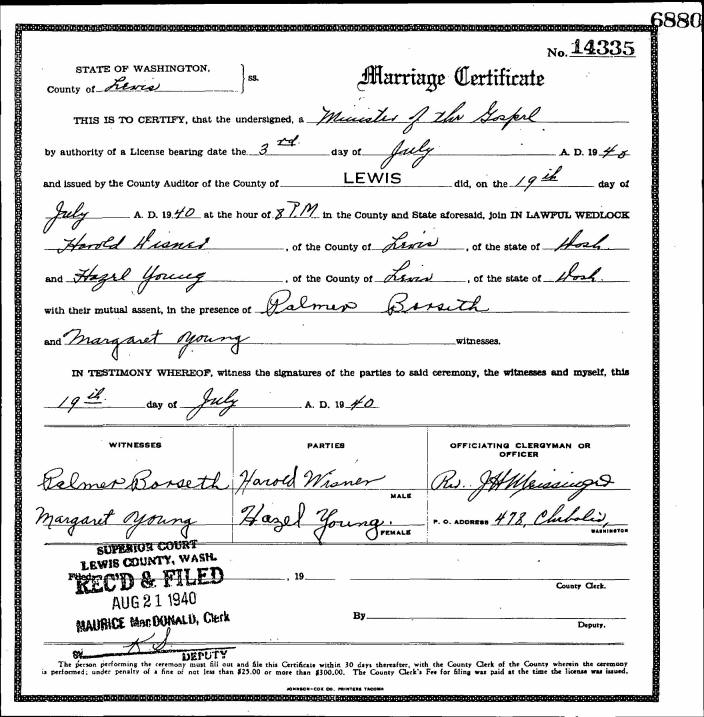 6880
No. 14335
STATE OF WASHINGTON,
County of Lewis } ss.
Marriage Certificate
THIS IS TO CERTIFY, that the undersigned, a Minister of the Gospel
by authority of a License bearing date the 3rd day of July A. D. 1940
and issued by the County Auditor of the County of LEWIS did, on the 19th day of
July A. D. 1940 at the hour of 8 P.M in the County and State aforesaid, join IN LAWFUL WEDLOCK
Harold Wisner , of the County of Lewis , of the state of Wash.
and Hazel Young , of the County of Lewis , of the state of Wash.
with their mutual assent, in the presence of Palmer Borseth
and Margaret Young witnesses.
IN TESTIMONY WHEREOF, witness the signatures of the parties to said ceremony, the witnesses and myself, this
19th day of July A. D. 1940
WITNESSES PARTIES OFFICIATING CLERGYMAN OR
OFFICER
Palmer Borseth Harold Wisner Rev. J H Meissinger
MALE
Margaret Young Hazel Young. P. O. ADDRESS 478,
FEMALE WASHINGTON
SUPERIOR COURT
LEWIS COUNTY, WASH.
Filed REC'D & FILED , 19
County Clerk.
AUG 21 1940
MAURICE MacDONALD, Clerk By
Deputy.
BY K S DEPUTY
The person performing the ceremony must fill out and file this Certificate within 30 days thereafter, with the County Clerk of the County wherein the ceremony
is performed; under penalty of a fine of not less than $25.00 or more than $300.00. The County Clerk's Fee for filing was paid at the time the license was issued.
JOHNSON-COX CO. PRINTERS TACOMA